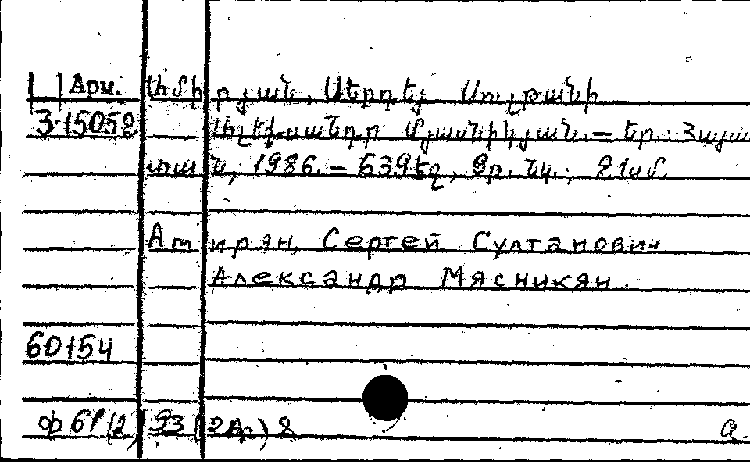 Арм. Ամիրյան, Սերգեյ Սուլթանի
3-15052 Ալեքսանդր Մյասնիկյան. – Եր.: Հայաս
տան, 1986. – 639 էջ, 9թ. նկ.; 21սմ.
Амирян, Сергей Султанович
Александр Мясникян.
60154
ф 61(2) 93(2Ар) 2 a